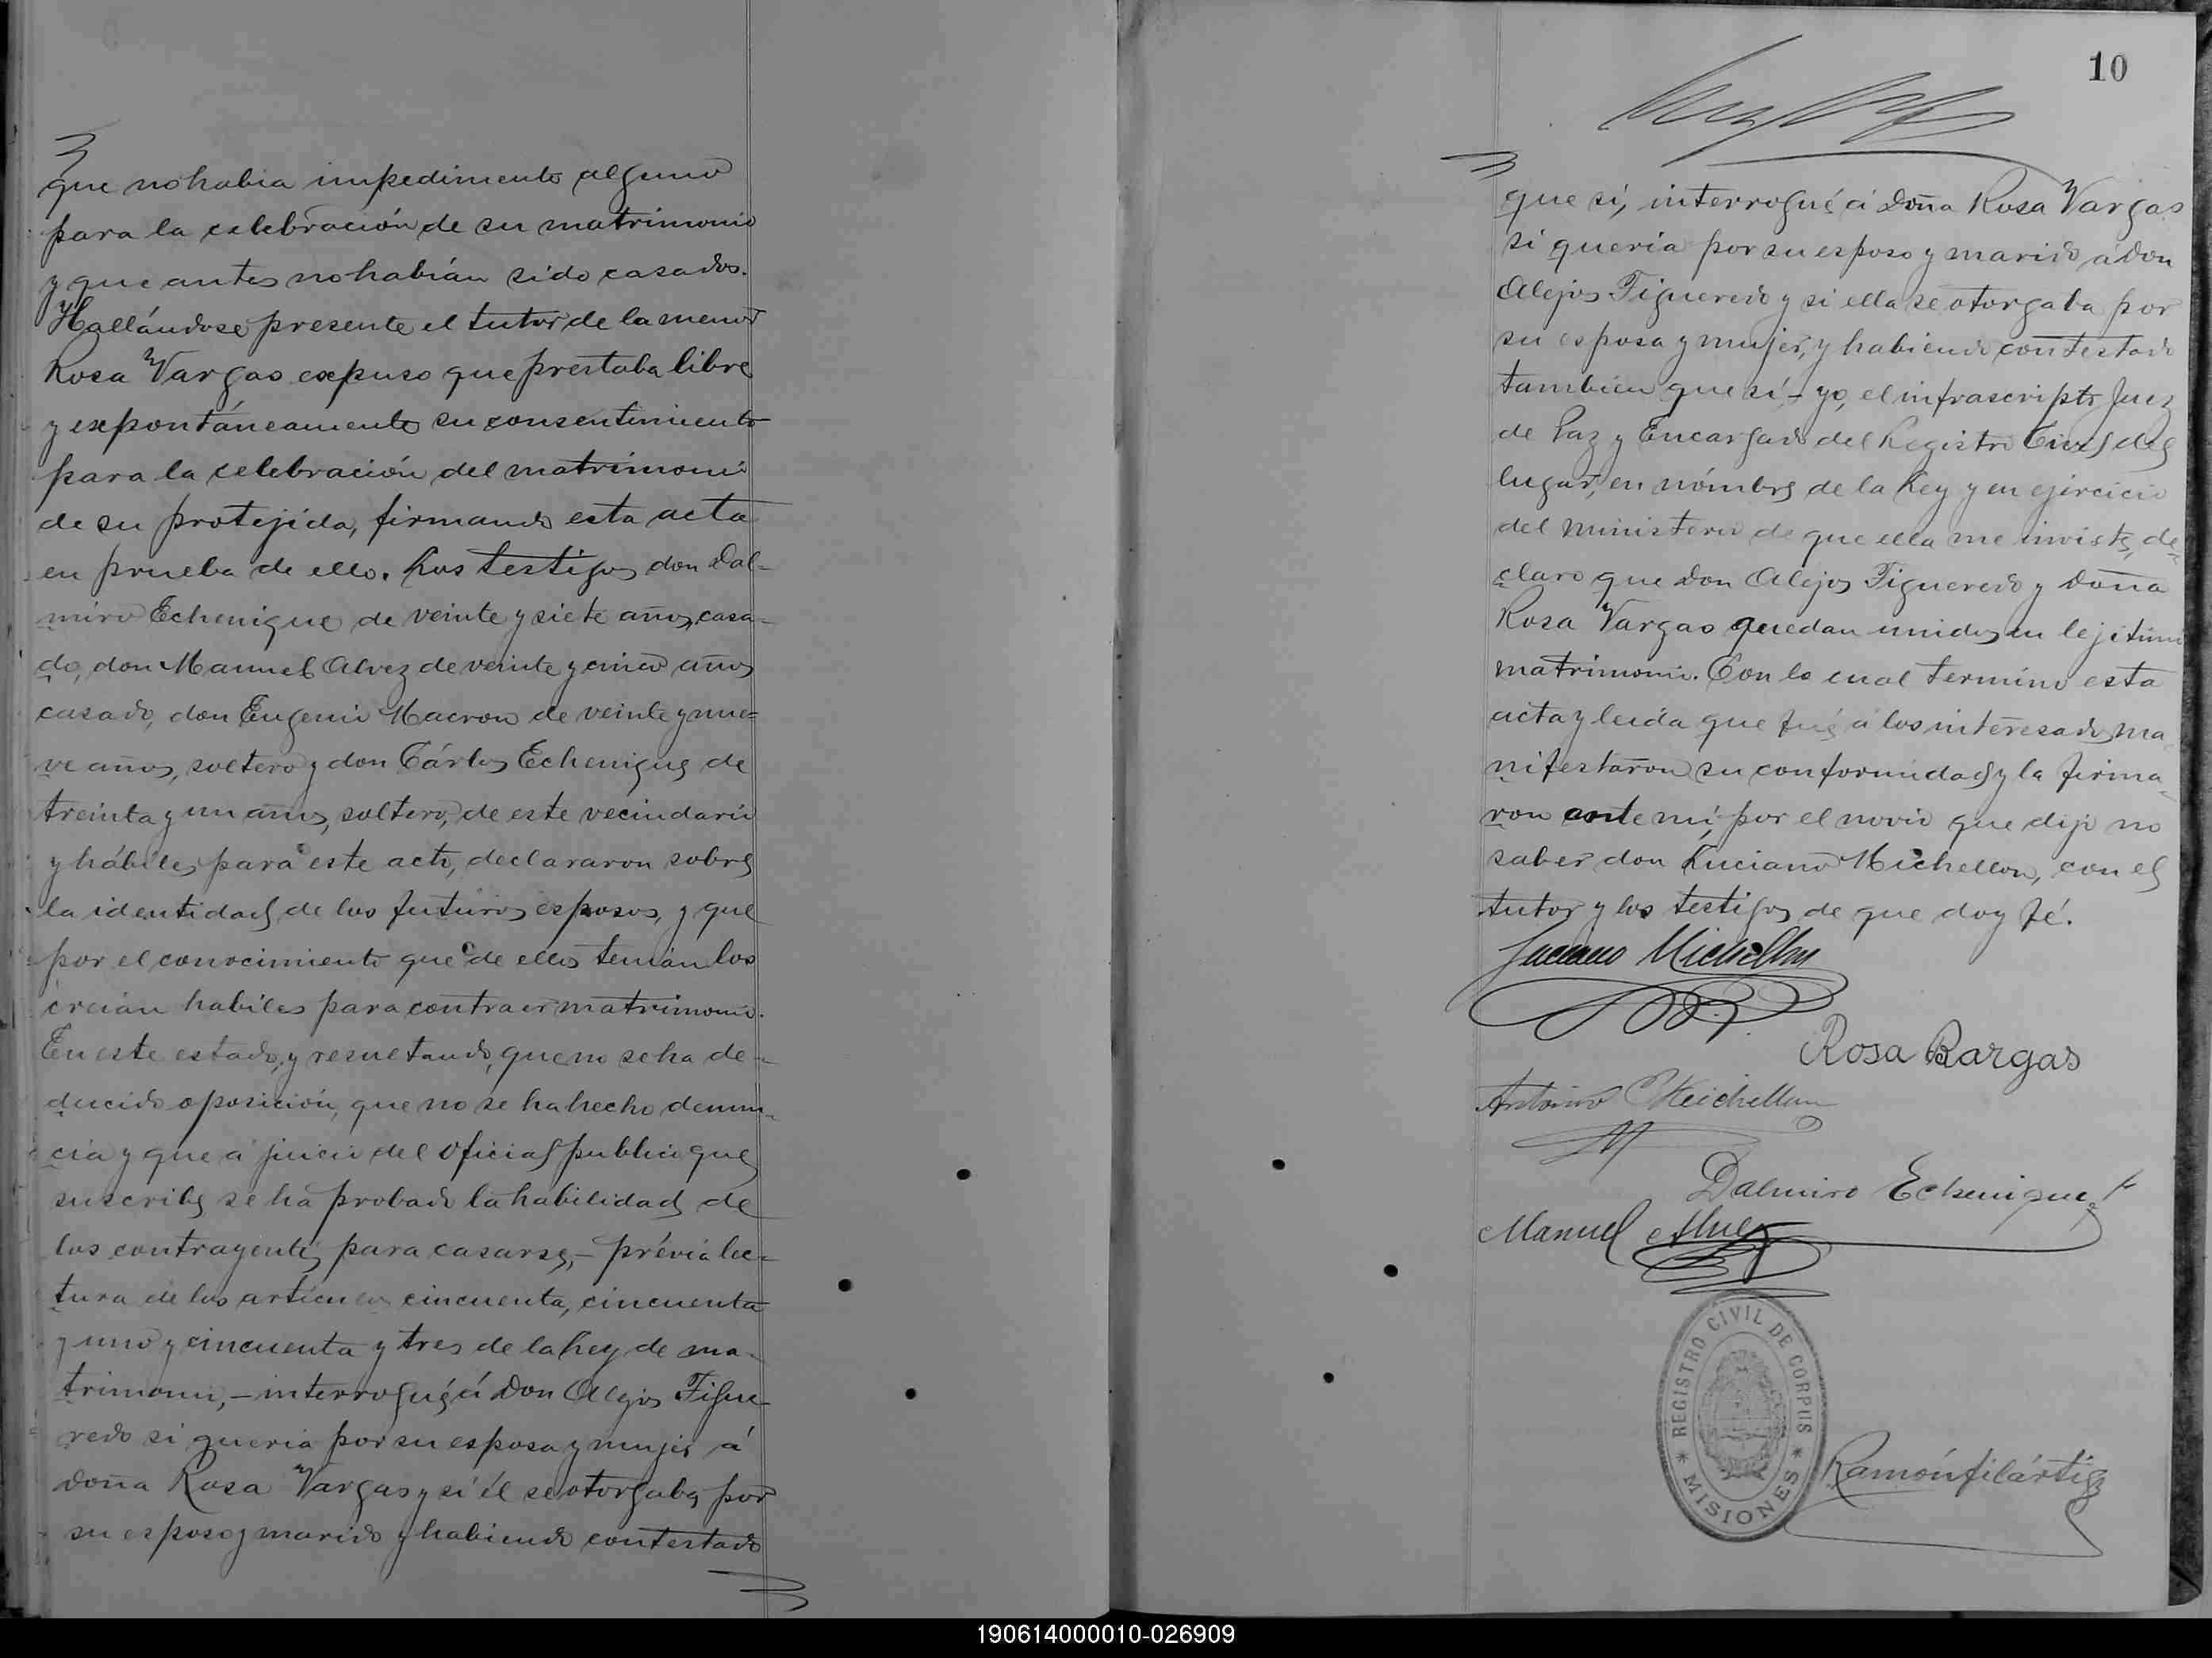 que no habia impedimento alguno
para la celebración de su matrimonio
y que antes no habián sido casados.
y Hallándose presente el tutor de la menor
Rosa Vargas expuso que prestaba libre
y expontáneamente su consentimiento
para la celebración del matrimonio
de su protejida, firmando esta acta
en prueba de ello. Los testigos don Dal-
miro Echenique de veinte y siete años, casa-
do, don Manuel Alvez de veinte y cinco años
casado, don Eugenio Macron de veinte y nue=
ve años, soltero y don Cárlos Echenique de
treinta y un años, soltero, de este vecindario
y hábiles para este acto, declararon sobre
la identidad de los futuros esposos, y que
por el conocimiento que de ellos tenián los
creián habiles para contraer matrimonio.
En este estado, y resultando, que no se ha de-
ducido oposición, que no se ha hecho denun-
cia y que á juicio del oficial publico que
suscribe se há probado la habilidad de
los contrayentes para casarse,- prévia lec-
tura de los articulos cincuenta, cincuenta
y uno y cincuenta y tres de la Ley de ma-
trimonio,- interrogué á Don Alejos Figue-
redo si queria por su esposa y mujer á
doña Rosa Vargas y si él se otorgaba por
su esposo y marido y habiendo contestado
10
que si, interrogué á Doña Rosa Vargas
si queria por su esposo y marido á don
Alejos Figueredo y si ella se otorgaba por
su esposa y mujer, y habiendo contestado
tambien que sí - yo, el infrascripto Juez
de Paz y Encargado del Registro Civil del
lugar, en nómbre de la Ley y en ejercicio
del ministerio de que ella me inviste, de-
claro que Don Alejos Figueredo y Doña
Rosa Vargas quedan unidos en lejitimo
matrimonio. Con lo cual termino esta
acta y leida que fué á los interesados ma-
nifestaron su conformidad y la firma-
ron ante mí, por el novio que dijo no
saber don Luciano Michellon, con el
tutor y los testigos de que doy fé.
Luciano Michellon
Rosa Bargas
Antonio Michellon
Dalmiro Echenique
Manuel Alvez
REGISTRO CIVIL DE CORPUS
* MISIONES *
Ramón Filártiga
190614000010-026909